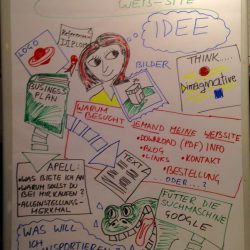 WEB-SITE
IDEE
LOGO
Referenzen
DIPLOM
BILDER
THINK....
Dimaginative
BUSINESS-
PLAN
WARUM
BESUCHT
JEMAND MEINE WEBSITE
• DOWNLOAD (PDF) INFO
• BLOG
• LINKS • KONTAKT
• BESTELLUNG
ODER...?
TEXT
APELL:
• WAS BIETE ICH AN
• WARUM SOLLST DU
BEI MIR KAUFEN?
• ALLEINSTELLUNGS-
MERKMAL
FÜTTER DIE
SUCHMASCHINE
GOOGLE
WAS WILL
ICH
TRANSPORTIEREN?